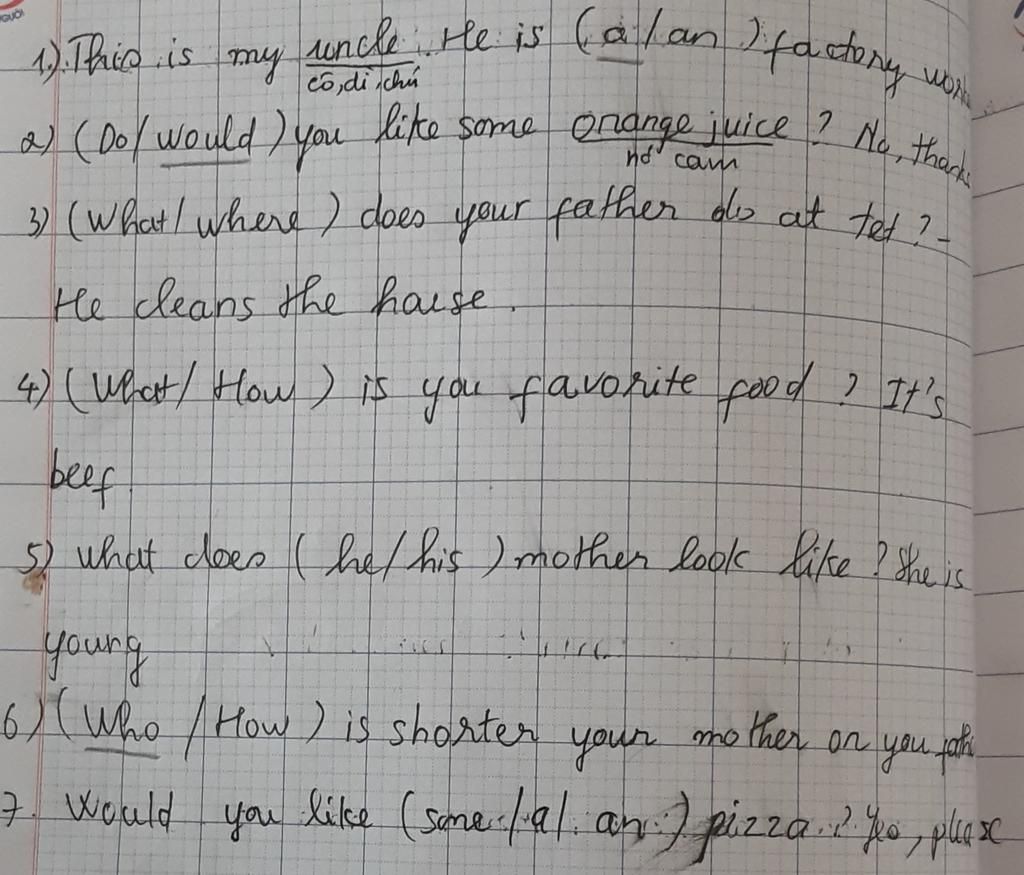 NGƯỜI
1.) This is my uncle. He is (a / an) factory
cô, dì, chú
2) (Do / would) you like some orange juice? No, thanks
nớ cam
3) (What / where) does your father do at tet? -
He cleans the hause.
4) (What / How) is you favorite food? It's
beef.
5) What does (he / his) mother look like? She is
young
6) (Who / How) is shorter your mother or you
7. Would you like (some / a / an) pizza? Yes, please